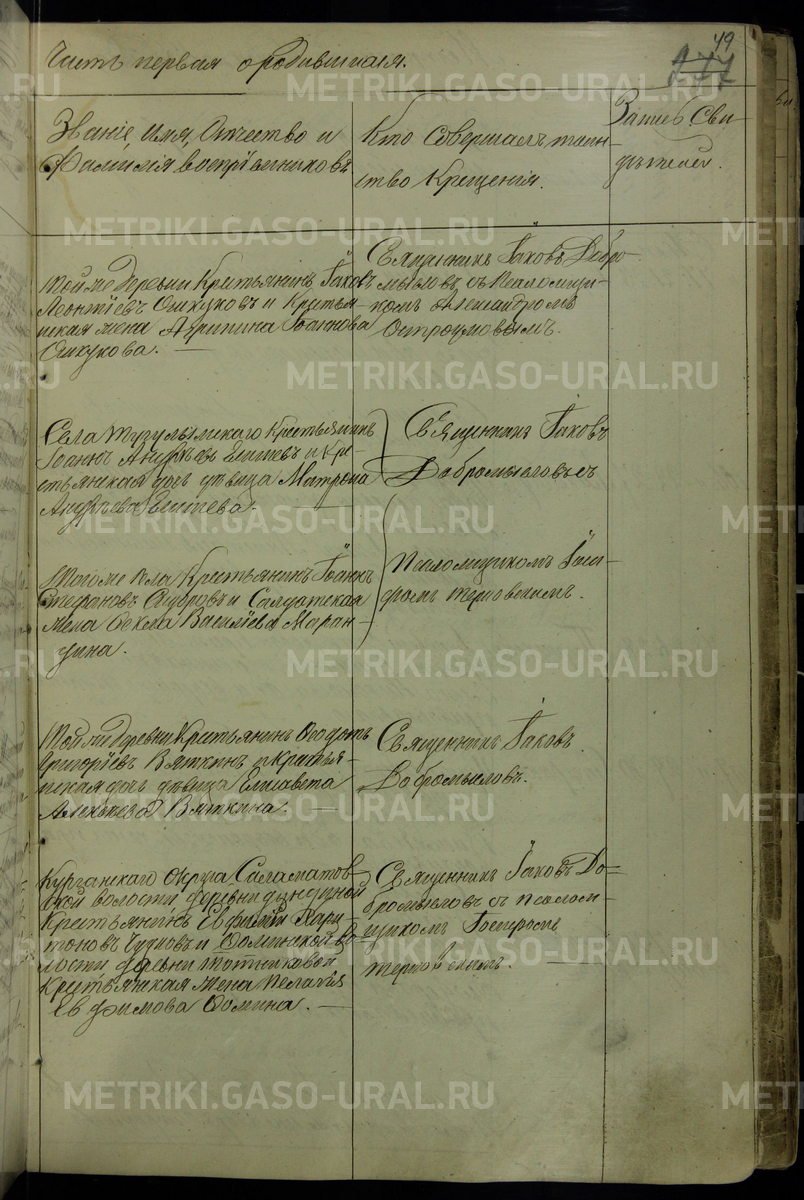 49
277
Часть первая о родившихся.
Званіе, имя, Отчество и
Фамилія воспріемниковъ
Кто Совершалъ таин-
ство Крещенія.
Запись Сви-
дѣтелей.
Той же деревни Крестьянинъ Іаковъ
Леонтіевъ и Крестьян-
ская жена Агрипина Іоаннова
Священникъ Іаковъ Добро-
мысловъ съ Псаломщи-
комъ Александромъ
Остроумовымъ.
Села Тугулымскаго Крестьянинъ
Іоаннъ Андреевъ и Кре-
стьянская дочь дѣвица Матрона
Андреева
Священникъ Іаковъ
Добромысловъ съ
Того же Села Крестьянинъ Іоаннъ
Стефановъ и Салдатская
жена Ѳекла Василіева Маран-
дина.
Псаломщикомъ
Той же деревни Крестьянинъ Ѳеодотъ
Григоріевъ Вяткинъ и Крестья-
нская дочь дѣвица Елисавета
Алексѣева Вяткина.
Священникъ Іаковъ
Добромысловъ.
Курганскаго Округа Саламатов-
ской волости деревни
Крестьянинъ Евфимій Хари-
тоновъ и Фоминской во-
лости деревни
Крестьянская жена Пелагея
Евфимова Фомина.
Священникъ Іаковъ До-
бромысловъ съ псалом-
щикомъ
METRIKI.GASO-URAL.RU